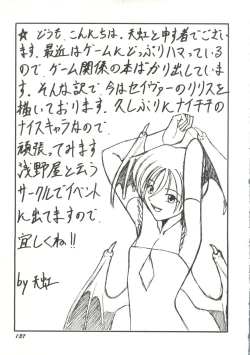 ☆ どうも、こんにちは、天虹と申す者でござい
ます。最近はゲームにどっぷりハマっている
ので、ゲーム関係の本ばかり出していま
す。そんな訳で今はセイヴァーのリリスを
描いております。久しぶりにナイチチの
ナイスキャラなので、
頑張ってみます
浅野屋と云う
サークルでイベント
に出てますので、
宜しくね!!
by 天虹
137